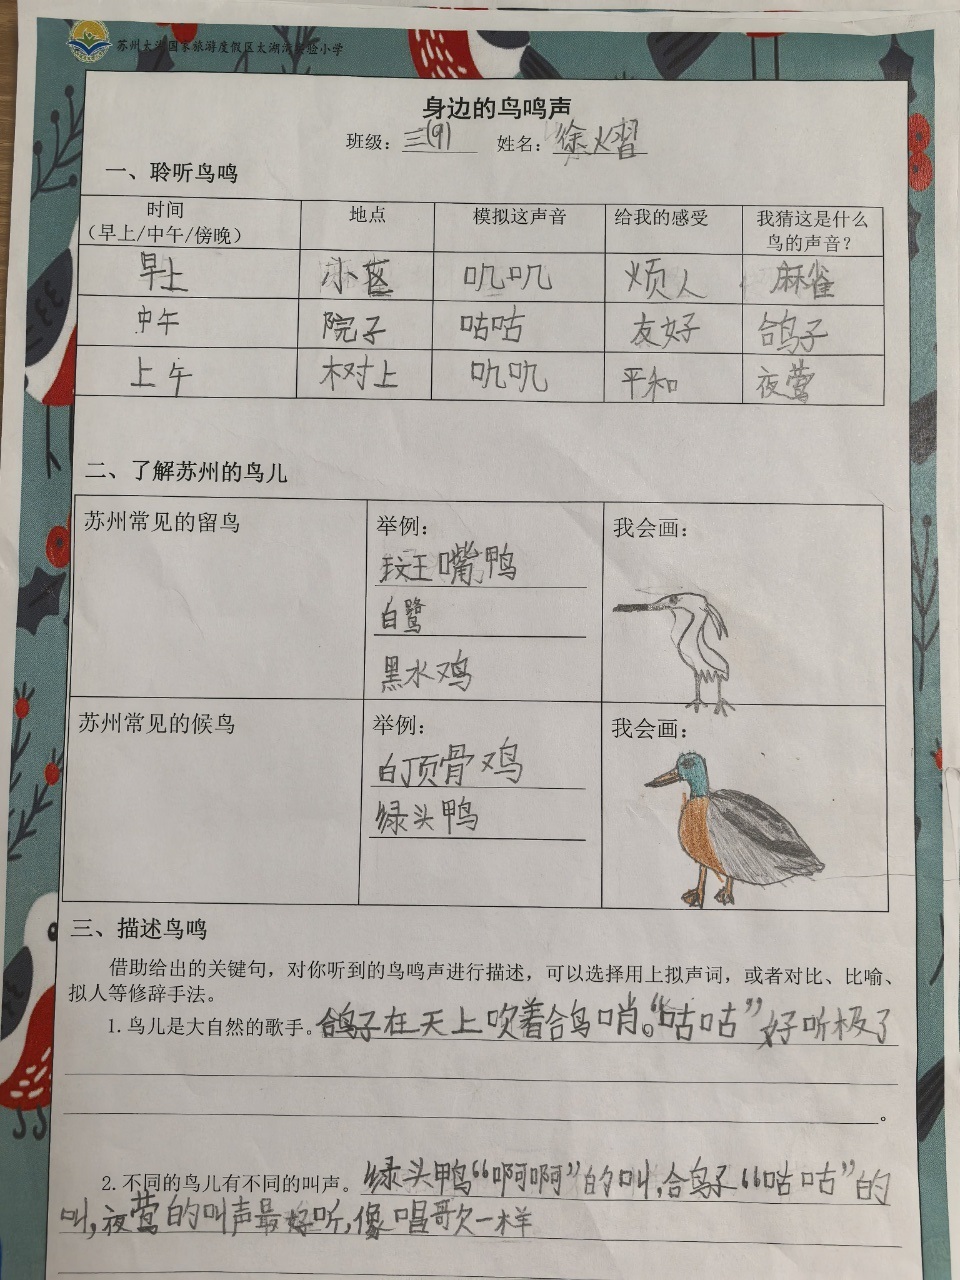 苏州太湖国家旅游度假区太湖湾实验小学
身边的鸟鸣声
班级：三(9) 姓名：徐熠
一、聆听鸟鸣
时间（早上/中午/傍晚） 地点 模拟这声音 给我的感受 我猜这是什么鸟的声音？
早上 小区 叽叽 烦人 麻雀
中午 院子 咕咕 友好 鸽子
上午 树上 叽叽 平和 夜莺
二、了解苏州的鸟儿
苏州常见的留鸟 举例： 我会画：
斑嘴鸭
白鹭
黑水鸡
苏州常见的候鸟 举例： 我会画：
白顶骨鸡
绿头鸭
三、描述鸟鸣
借助给出的关键句，对你听到的鸟鸣声进行描述，可以选择用上拟声词，或者对比、比喻、
拟人等修辞手法。
1.鸟儿是大自然的歌手。鸽子在天上吹着鸽哨。“咕咕”好听极了
。
2.不同的鸟儿有不同的叫声。绿头鸭“啊啊”的叫，鸽子“咕咕”的
叫，夜莺的叫声最好听，像唱歌一样